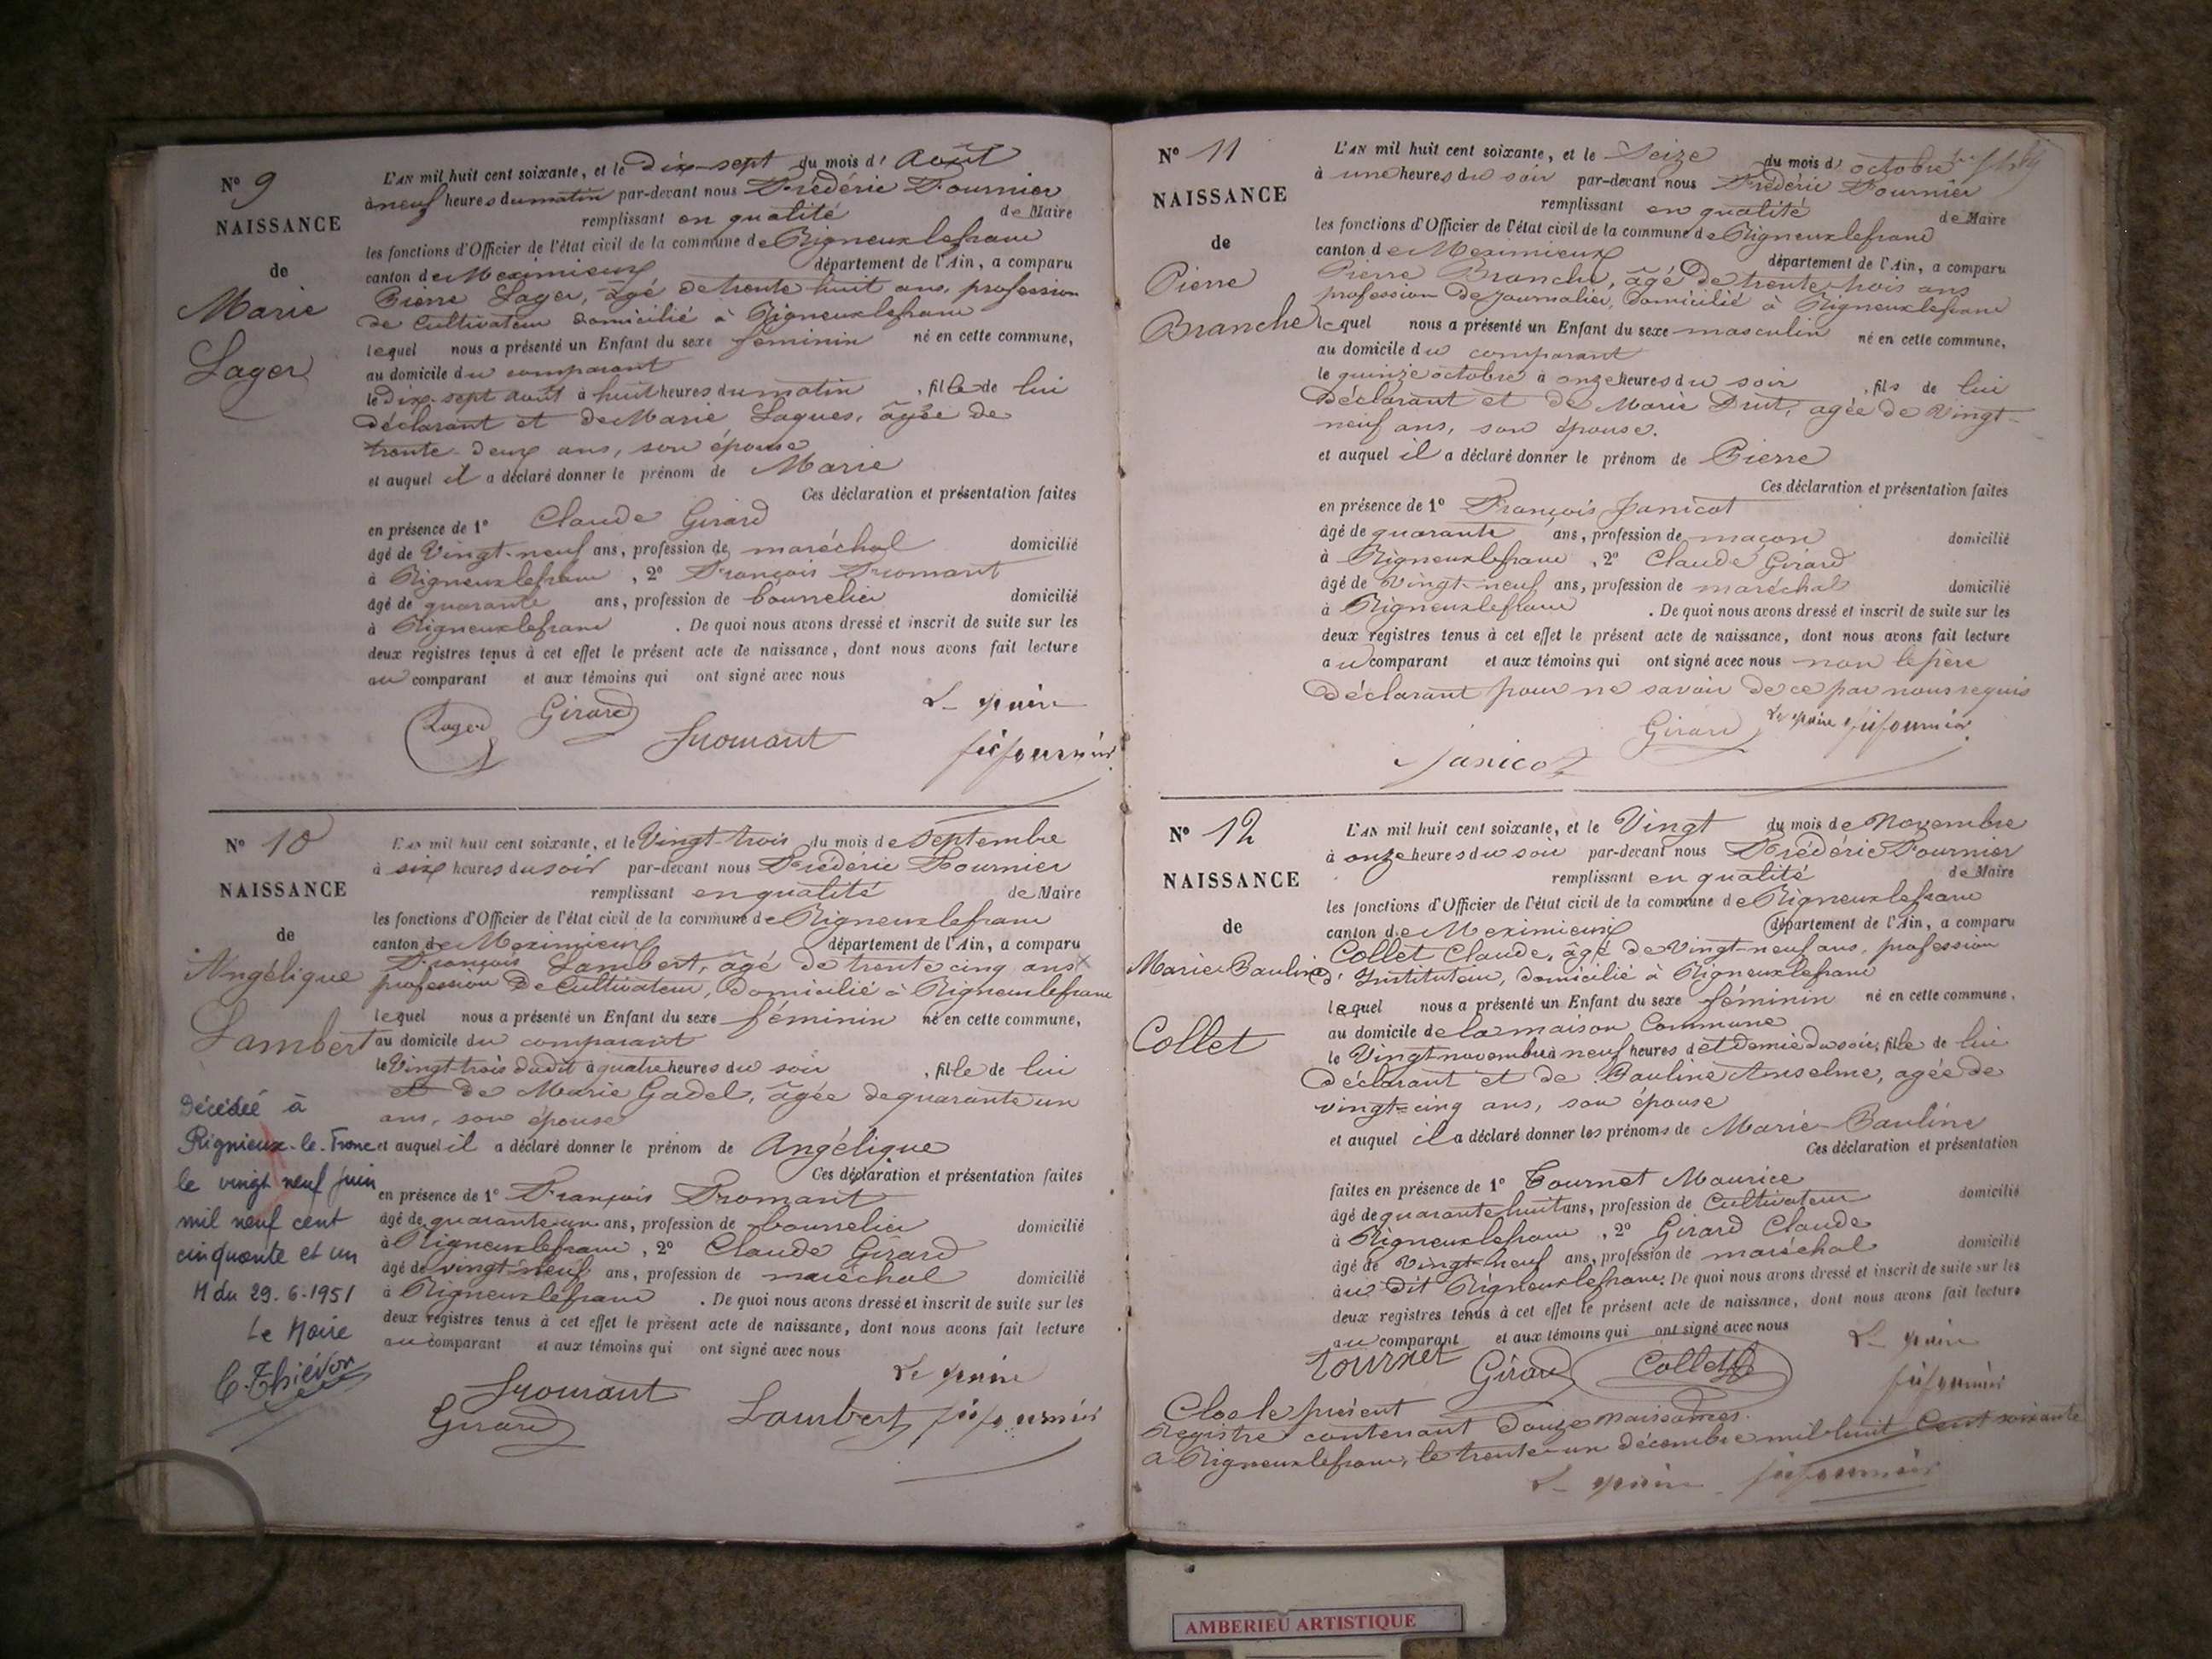 Nº 9
NAISSANCE
de
Marie
Lager
L'AN mil huit cent soixante, et le Dix-sept du mois d' Août
à neuf heures du matin par-devant nous Frédéric Fournier
remplissant en qualité de Maire
les fonctions d'Officier de l'état civil de la commune de Rigneuxlefranc
canton de Meximieux département de l'Ain, a comparu
Pierre Lager, âgé de trente huit ans, profession
de Cultivateur domicilié à Rigneuxlefranc
lequel nous a présenté un Enfant du sexe féminin né en cette commune,
au domicile du comparant
le Dix-sept août à huit heures du matin , fille de lui
Déclarant et de Marie Lagues, âgée de
trente-deux ans, son épouse
et auquel il a déclaré donner le prénom de Marie
Ces déclaration et présentation faites
en présence de 1º Claude Girard
âgé de Vingt-neuf ans, profession de maréchal domicilié
à Rigneuxlefranc , 2º François Fromant
âgé de quarante ans, profession de bourrelier domicilié
à Rigneuxlefranc . De quoi nous avons dressé et inscrit de suite sur les
deux registres tenus à cet effet le présent acte de naissance, dont nous avons fait lecture
au comparant et aux témoins qui ont signé avec nous
Lager Girard Fromant Le maire
fs fournier
Nº 10
NAISSANCE
de
Angélique
Lambert
L'AN mil huit cent soixante, et le Vingt-trois du mois de Septembre
à six heures du soir par-devant nous Frédéric Fournier
remplissant en qualité de Maire
les fonctions d'Officier de l'état civil de la commune de Rigneuxlefranc
canton de Meximieux département de l'Ain, a comparu
François Lambert, âgé de trente cinq ans
profession De Cultivateur, Domicilié à Rigneuxlefranc
lequel nous a présenté un Enfant du sexe féminin né en cette commune,
au domicile du comparant
le Vingt-trois dudit à quatre heures du soir , fille de lui
et de Marie Gadel, âgée de quarante un
ans, son épouse
et auquel il a déclaré donner le prénom de Angélique
Ces déclaration et présentation faites
en présence de 1º François Fromant
âgé de quarante-un ans, profession de bourrelier domicilié
à Rigneuxlefranc , 2º Claude Girard
âgé de vingt-neuf ans, profession de maréchal domicilié
à Rigneuxlefranc . De quoi nous avons dressé et inscrit de suite sur les
deux registres tenus à cet effet le présent acte de naissance, dont nous avons fait lecture
au comparant et aux témoins qui ont signé avec nous
Le maire
Fromant
Girard Lambert fs fournier
Décédée à
Rignieux-le-Franc
le vingt neuf juin
mil neuf cent
cinquante et un
M du 29.6.1951
Le Maire
C. Thiévon
Nº 11
NAISSANCE
de
Pierre
Branche
L'AN mil huit cent soixante, et le Seize du mois d' octobre
à une heures du soir par-devant nous Frédéric Fournier
remplissant en qualité de Maire
les fonctions d'Officier de l'état civil de la commune de Rigneuxlefranc
canton de Meximieux département de l'Ain, a comparu
Pierre Branche, âgé de trente-trois ans
profession De Journalier, Domicilié à Rigneuxlefranc
lequel nous a présenté un Enfant du sexe masculin né en cette commune,
au domicile du comparant
le quinze octobre à onze heures du soir , fils de lui
Déclarant et de Marie Drut, agée de Vingt-
neuf ans, son épouse.
et auquel il a déclaré donner le prénom de Pierre
Ces déclaration et présentation faites
en présence de 1º François Janicot
âgé de quarante ans, profession de maçon domicilié
à Rigneuxlefranc , 2º Claude Girard
âgé de Vingt-neuf ans, profession de maréchal domicilié
à Rigneuxlefranc . De quoi nous avons dressé et inscrit de suite sur les
deux registres tenus à cet effet le présent acte de naissance, dont nous avons fait lecture
au comparant et aux témoins qui ont signé avec nous non le père
Déclarant pour ne savoir de ce par nous requis
Girard Le maire fs fournier
Janicot
Nº 12
NAISSANCE
de
Marie Pauline
Collet
L'AN mil huit cent soixante, et le Vingt du mois de Novembre
à onze heures du soir par-devant nous Frédéric Fournier
remplissant en qualité de Maire
les fonctions d'Officier de l'état civil de la commune de Rigneuxlefranc
canton de Meximieux département de l'Ain, a comparu
Collet Claude, âgé de Vingt-neuf ans, profession
d'Instituteur, Domicilié à Rigneuxlefranc
lequel nous a présenté un Enfant du sexe féminin né en cette commune,
au domicile de la maison Commune
le Vingt novembre à neuf heures et Demie du soir, fille de lui
Déclarant et de Pauline Anselme, agée de
vingt-cinq ans, son épouse
et auquel il a déclaré donner les prénoms de Marie-Pauline
Ces déclaration et présentation
faites en présence de 1º Tournet Maurice
âgé de quarante huit ans, profession de Cultivateur domicilié
à Rigneuxlefranc , 2º Girard Claude
âgé de Vingt-neuf ans, profession de maréchal domicilié
au dit Rigneuxlefranc. De quoi nous avons dressé et inscrit de suite sur les
deux registres tenus à cet effet le présent acte de naissance, dont nous avons fait lecture
au comparant et aux témoins qui ont signé avec nous
Tournet Girard Collet Le maire
fs fournier
Clos le présent
Registre contenant Douze naissances.
a Rigneuxlefranc, le trente-un décembre mil huit Cent soixante
Le maire fs fournier
AMBERIEU ARTISTIQUE